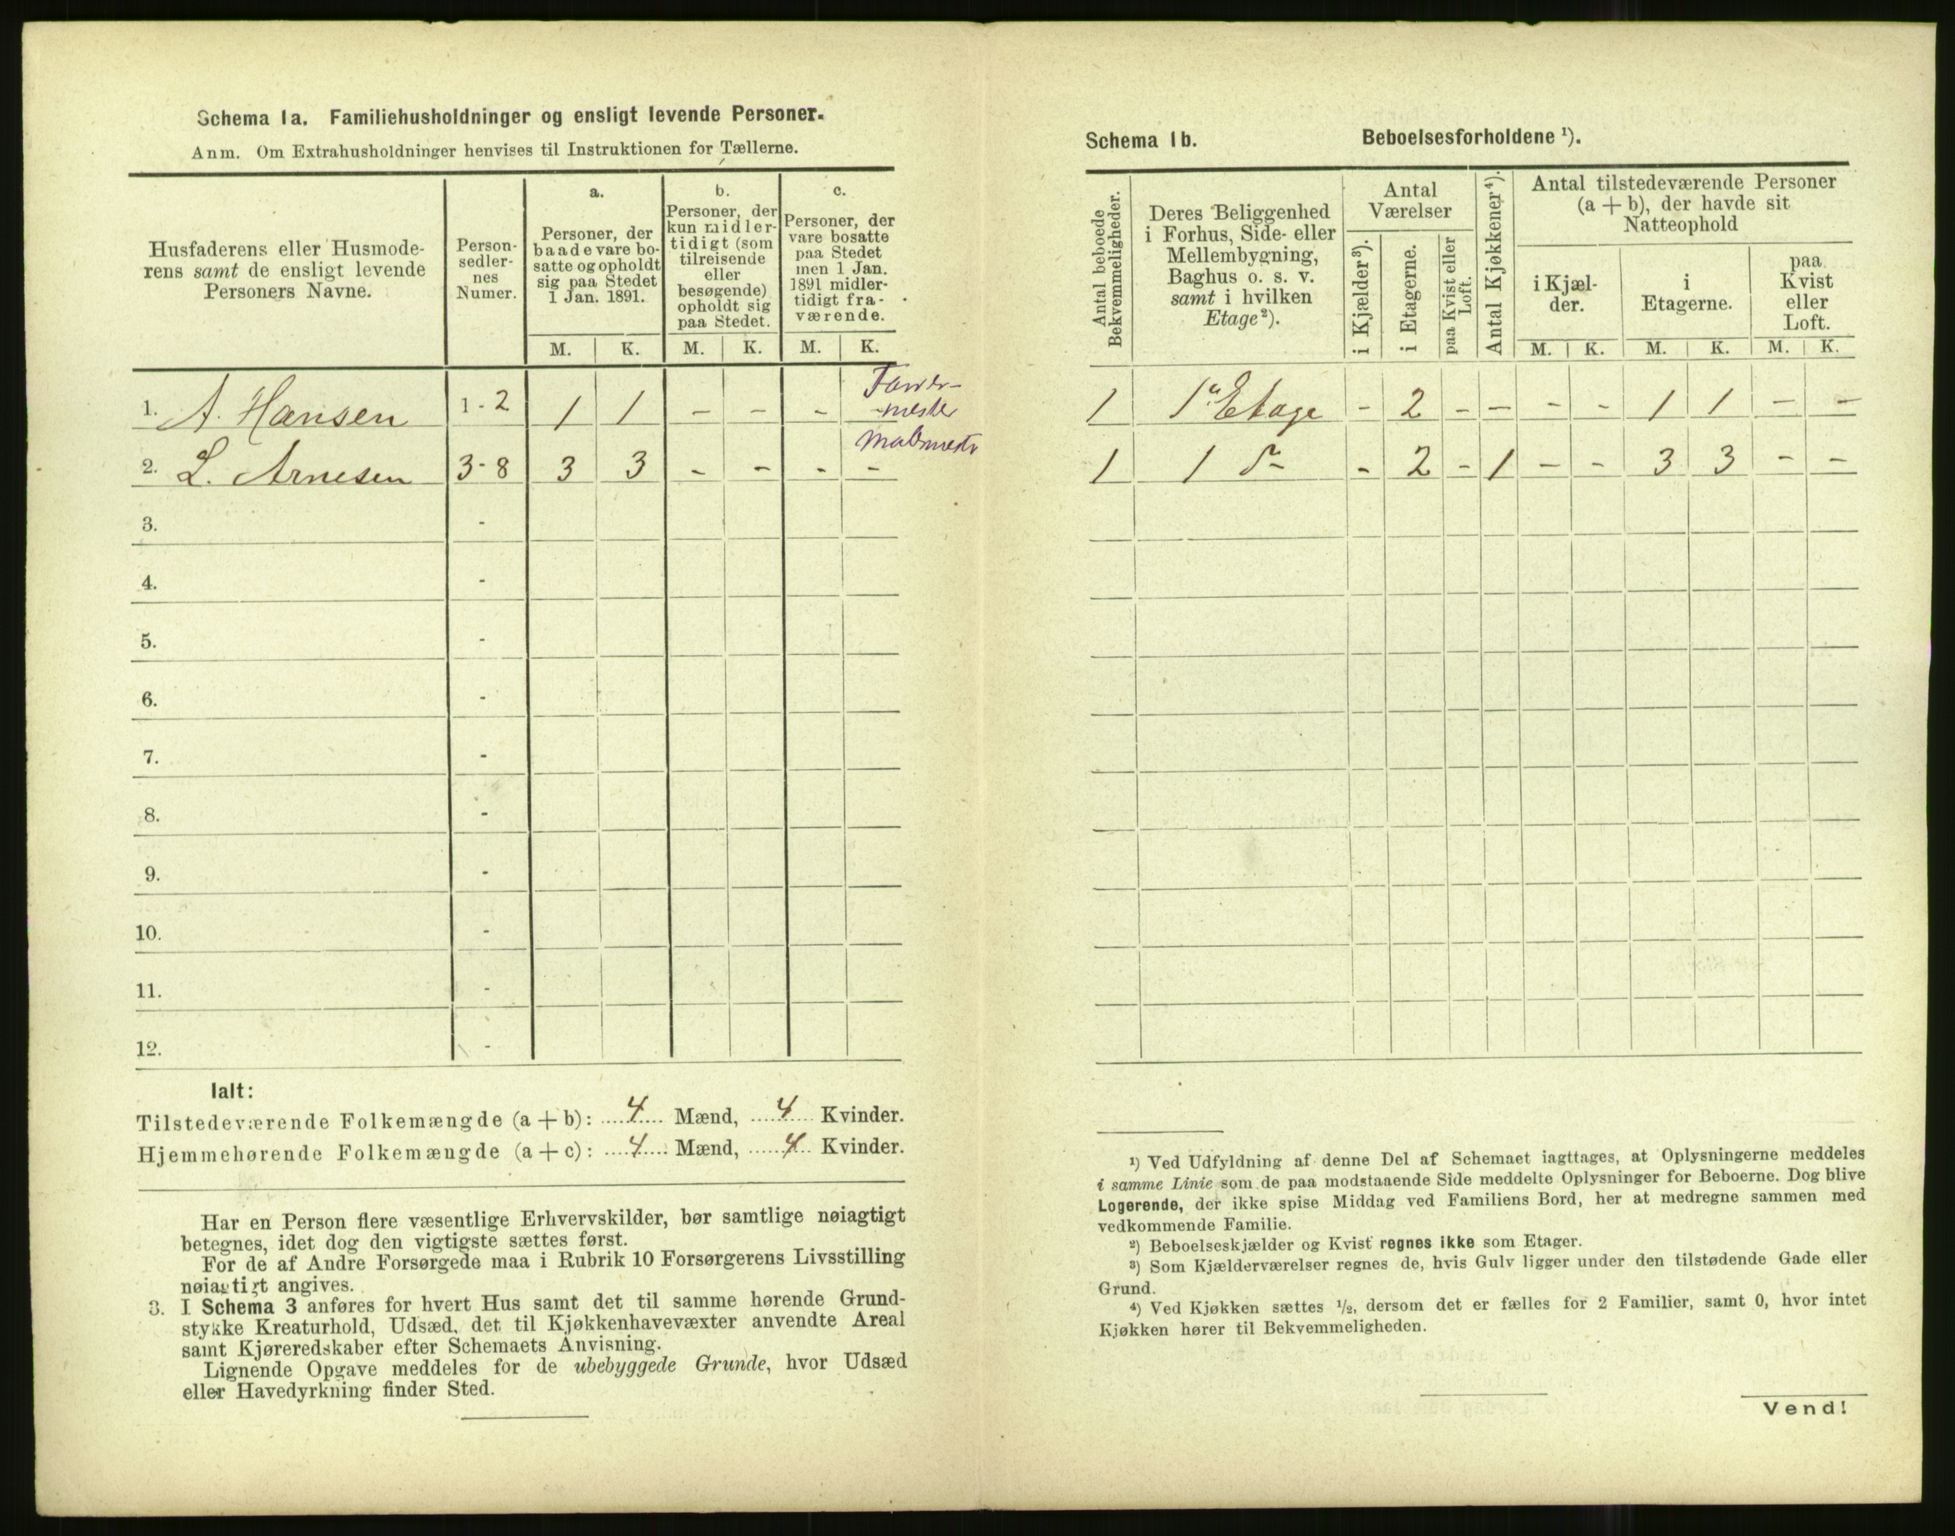 Schema 1a. Familiehusholdninger og ensligt levende Personer.
Anm. Om Extrahusholdninger henvises til Instruktionen for Tællerne.
Husfaderens eller Husmode-
rens samt de ensligt levende
Personers Navne.
Person-
sedler-
nes
Numer.
a.
Personer, der
baade vare bo-
satte og opholdt
sig paa Stedet
1 Jan. 1891.
b.
Personer, der
kun midler-
tidigt (som
tilreisende
eller
besøgende)
opholdt sig
paa Stedet.
c.
Personer, der
vare bosatte
paa Stedet
men 1 Jan.
1891 midler-
tidigt fra-
værende.
M. K. M. K. M. K.
1. A. Hansen 1 - 2 1 1 - - -
2. L. Arnesen 3 - 8 3 3 - - - -
3. -
4. -
5. -
6. -
7. -
8. -
9. -
10. -
11. -
12. -
Ialt:
Tilstedeværende Folkemængde (a + b): 4 Mænd, 4 Kvinder.
Hjemmehørende Folkemængde (a + c): 4 Mænd, 4 Kvinder.
Har en Person flere væsentlige Erhvervskilder, bør samtlige nøiagtigt
betegnes, idet dog den vigtigste sættes først.
For de af Andre Forsørgede maa i Rubrik 10 Forsørgerens Livsstilling
nøiagtigt angives.
3. I Schema 3 anføres for hvert Hus samt det til samme hørende Grund-
stykke Kreaturhold, Udsæd, det til Kjøkkenhavevæxter anvendte Areal
samt Kjøreredskaber efter Schemaets Anvisning.
Lignende Opgave meddeles for de ubebyggede Grunde, hvor Udsæd
eller Havedyrkning finder Sted.
Schema 1b. Beboelsesforholdene ¹).
Antal beboede
Bekvemmeligheder.
Deres Beliggenhed
i Forhus, Side- eller
Mellembygning,
Baghus o. s. v.
samt i hvilken
Etage²).
Antal
Værelser
i Kjælder³).
i Etagerne.
paa Kvist eller
Loft.
Antal Kjøkkener⁴).
Antal tilstedeværende Personer
(a + b), der havde sit
Natteophold
i Kjæl-
der.
i
Etagerne.
paa
Kvist
eller
Loft.
M. K. M. K. M. K.
1 1ste Etage - 2 - - - - 1 1 - -
1 1 - 2 - 1 - - 3 3 - -
¹) Ved Udfyldning af denne Del af Schemaet iagttages, at Oplysningerne meddeles
i samme Linie som de paa modstaaende Side meddelte Oplysninger for Beboerne. Dog blive
Logerende, der ikke spise Middag ved Familiens Bord, her at medregne sammen med
vedkommende Familie.
²) Beboelseskjælder og Kvist regnes ikke som Etager.
³) Som Kjælderværelser regnes de, hvis Gulv ligger under den tilstødende Gade eller
Grund.
⁴) Ved Kjøkken sættes ½, dersom det er fælles for 2 Familier, samt 0, hvor intet
Kjøkken hører til Bekvemmeligheden.
Vend!